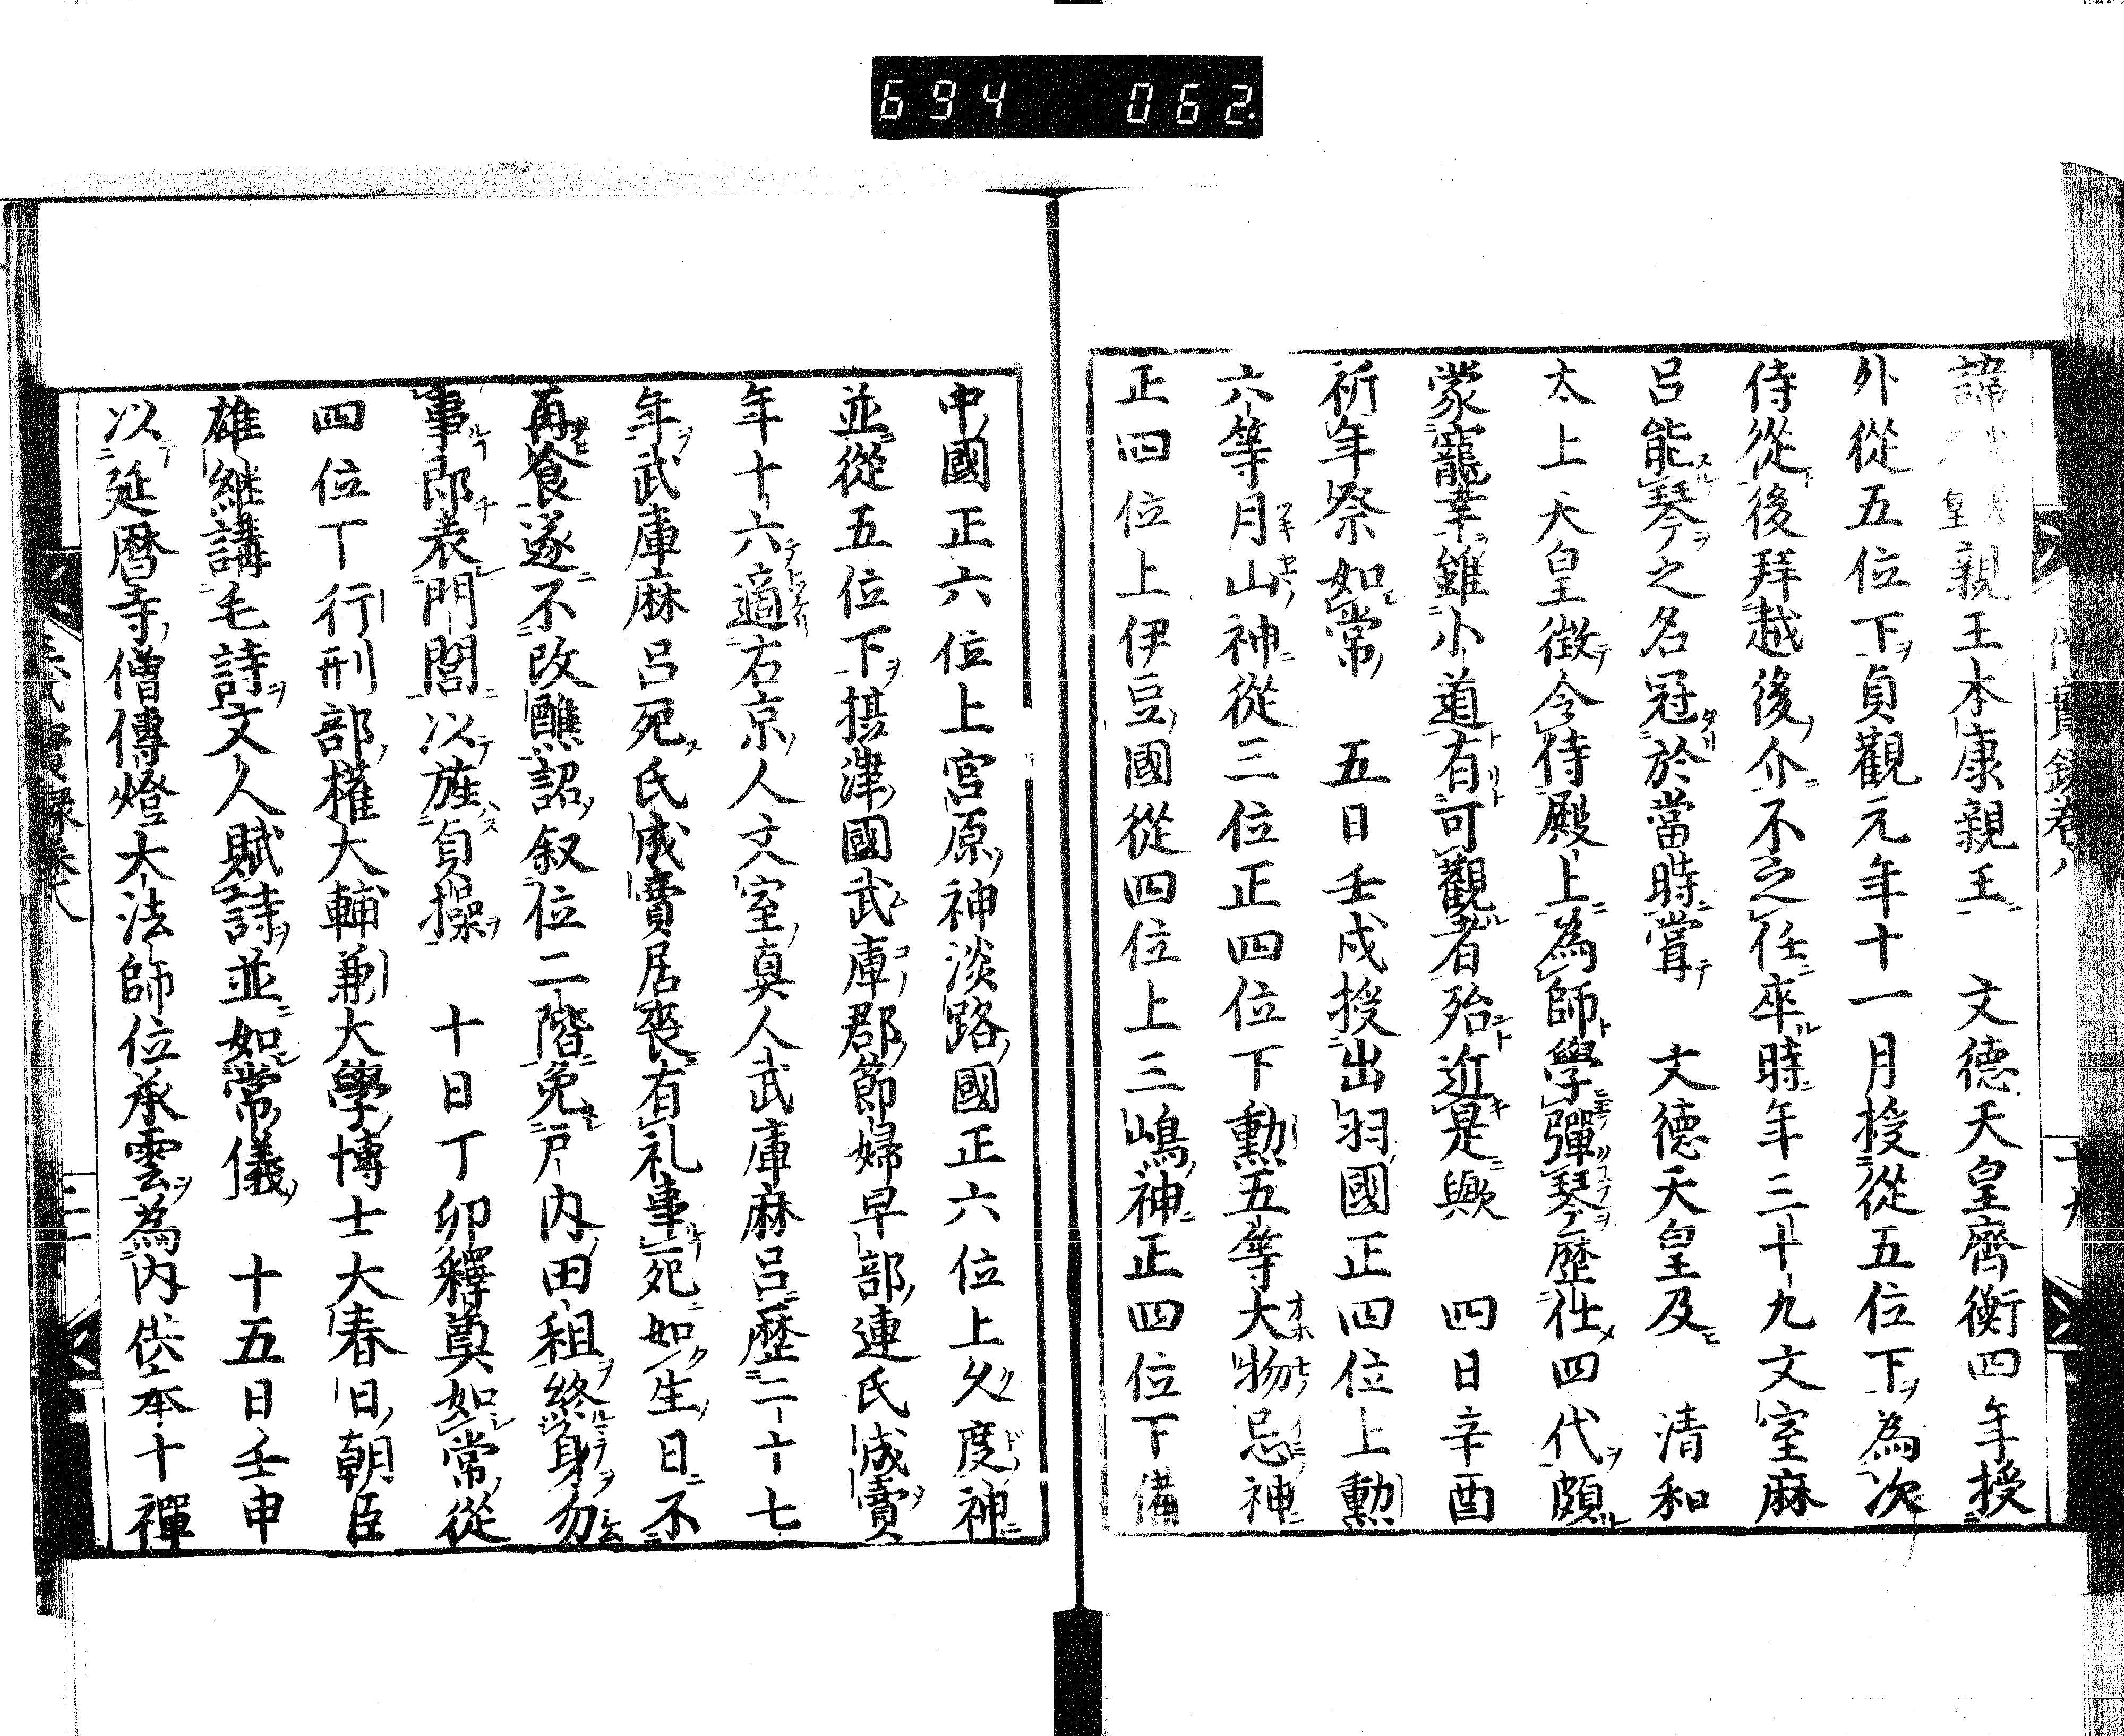 694 062
諱 皇親王本康親王 文德天皇齊衡四年授
外從五位下貞觀元年十一月授從五位下為次
侍從後拜越後介不之任卒時年三十九文室麻
呂能琴之名冠於當時嘗 文徳天皇及 清和
太上天皇徴令侍殿上為師學彈琴歷仕四代頗
蒙寵幸雖小道有可觀者殆近是歟 四日辛酉
祈年祭如常 五日壬戌授出羽國正四位上勳
六等月山神從三位正四位下勳五等大物忌神
正四位上伊豆國從四位上三嶋神正四位下備
中國正六位上宮原神淡路國正六位上久度神
並從五位下摂津國武庫郡節婦早部連氏成賣
年十六適右京人文室真人武庫麻呂歷二十七
年武庫麻呂死氏成賣居喪有礼事死如生日不
再食遂不改醮詔叙位二階免戸内田租終身勿
事即表門閭以旌貞操 十日丁卯釋奠如常從
四位下行刑部權大輔兼大學博士大春日朝臣
雄継講毛詩文人賦詩並如常儀 十五日壬申
以延暦寺僧傳燈大法師位承雲為内供奉十禪